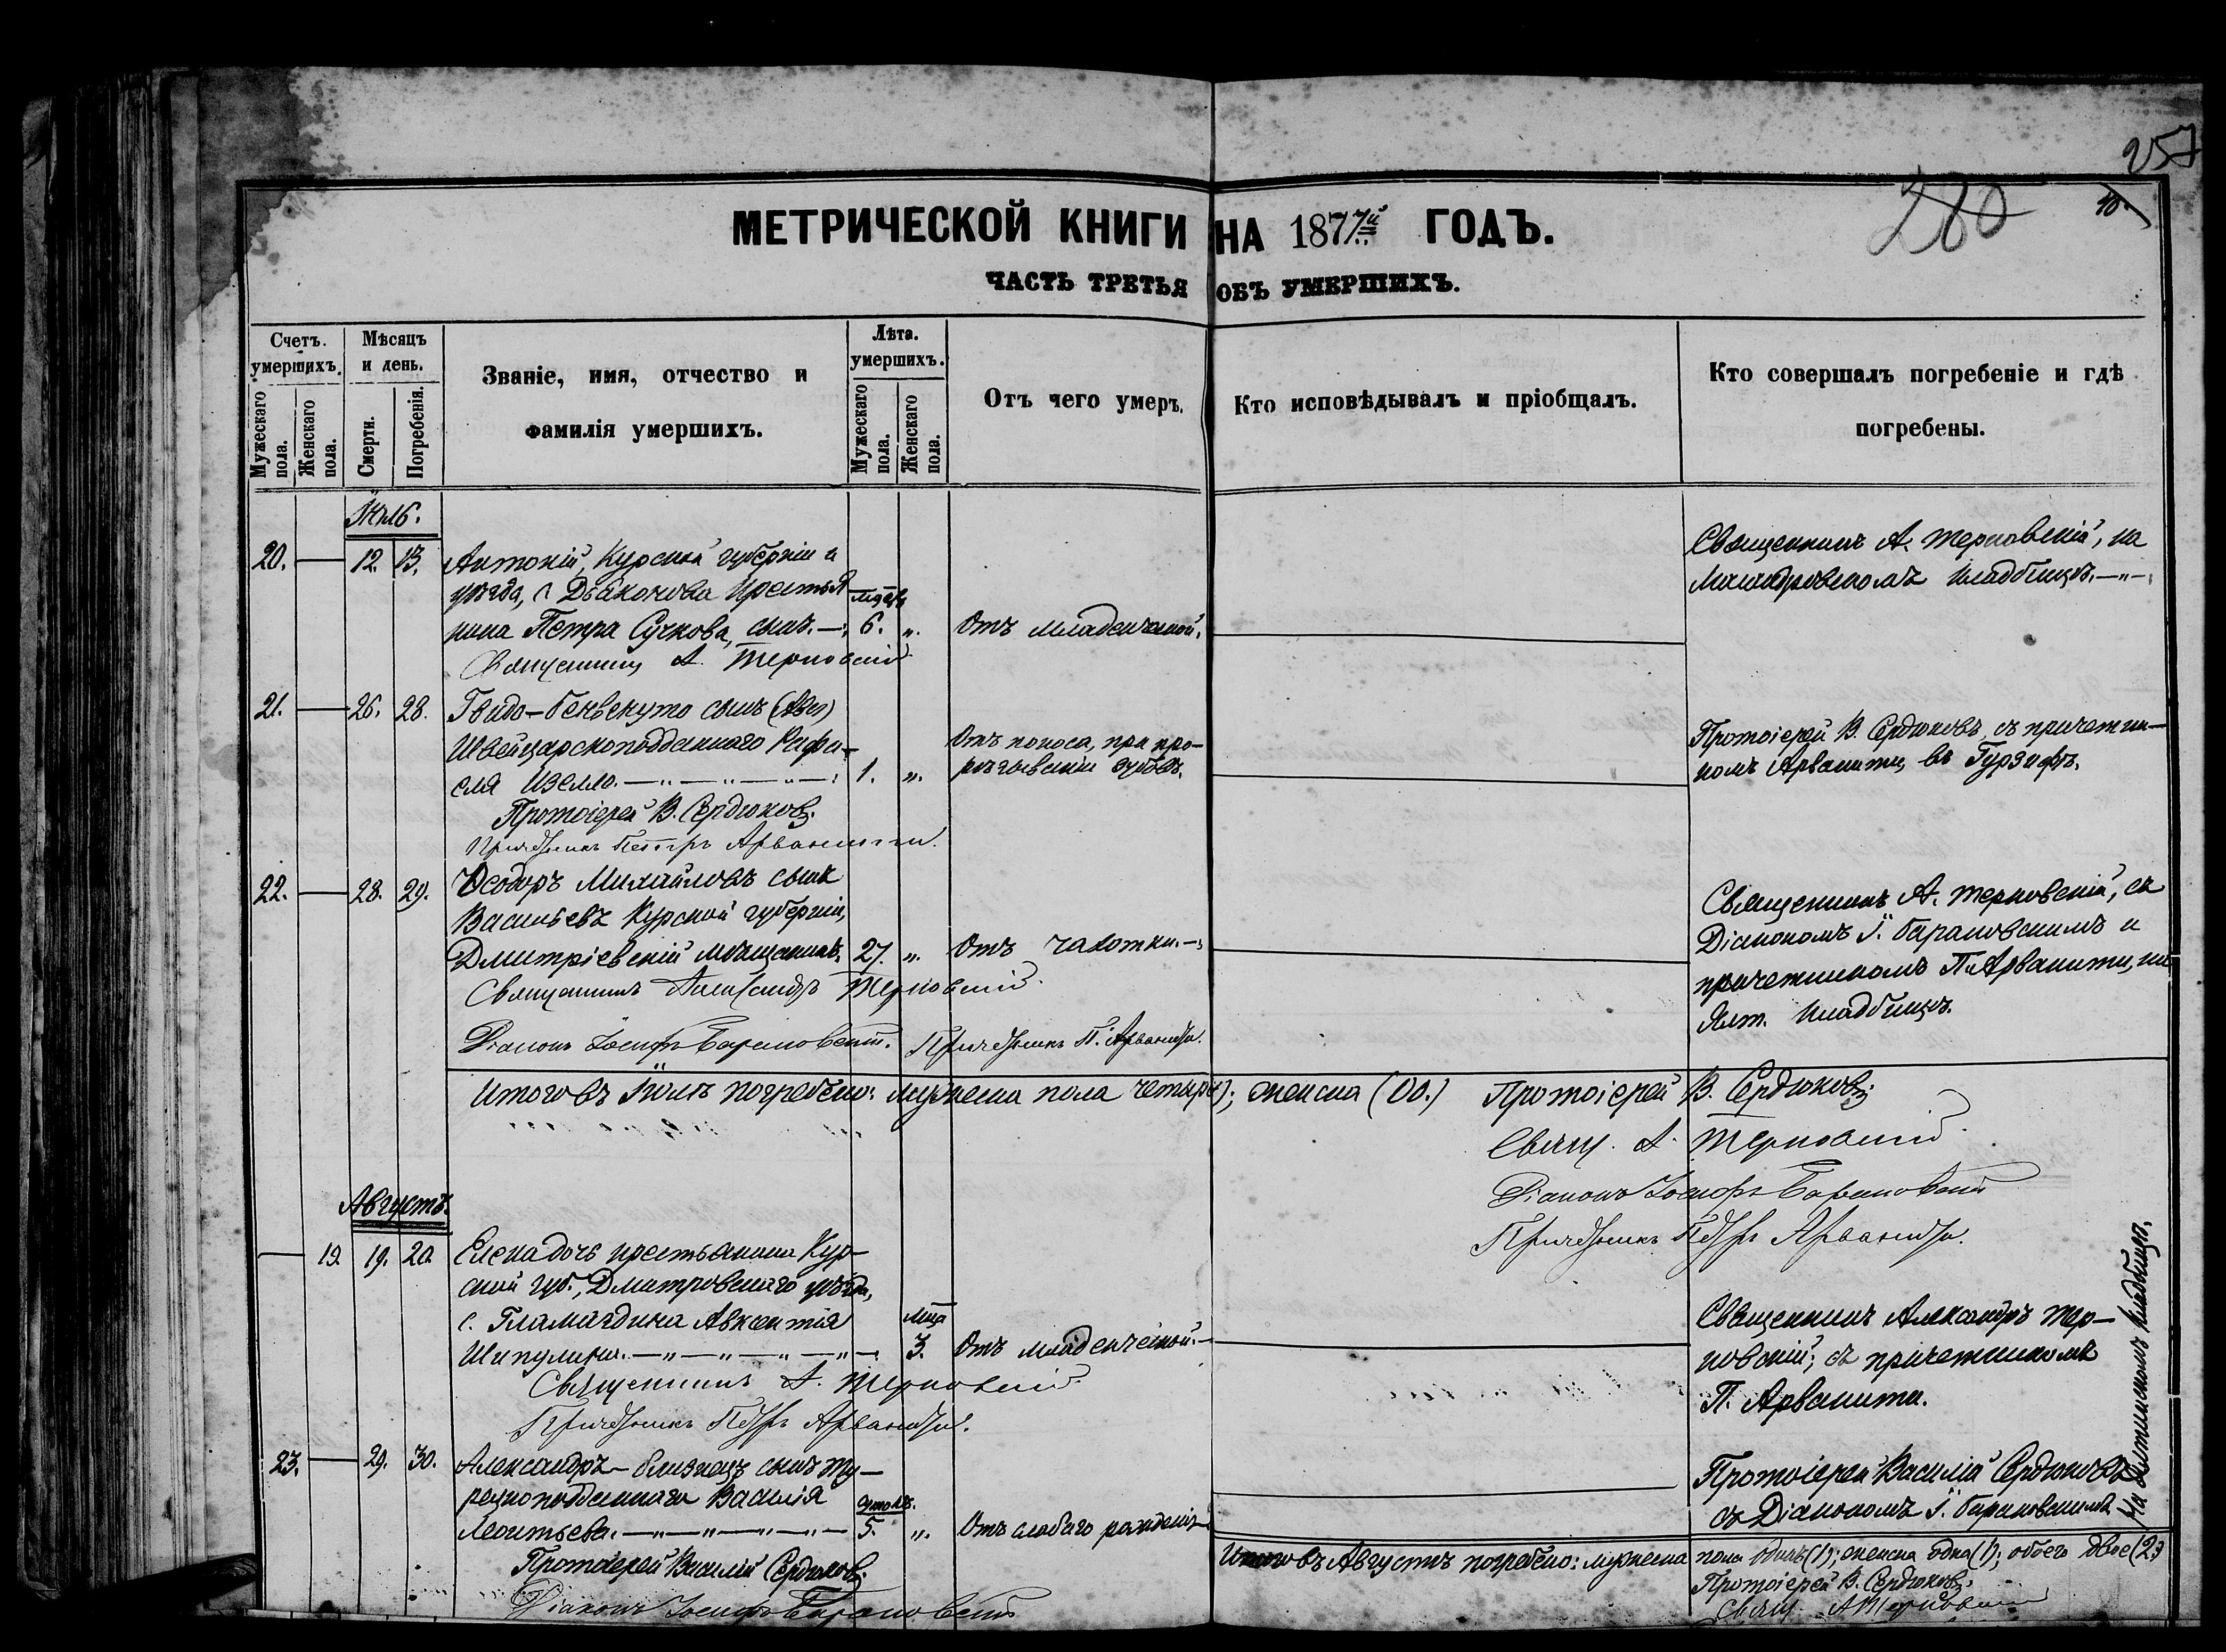 257
280
10.
МЕТРИЧЕСКОЙ КНИГИ НА 1877й ГОДЪ.
ЧАСТЬ ТРЕТЬЯ ОБЪ УМЕРШИХЪ.
Счетъ. умершихъ.
Мужескаго пола.
Женскаго пола.
Мѣсяцъ и день.
Смерти.
Погребенія.
Званіе, имя, отчество и
фамилія умершихъ.
Лѣта. умершихъ.
Мужескаго пола.
Женскаго пола.
Отъ чего умеръ.
Кто исповѣдывалъ и пріобщалъ.
Кто совершалъ погребеніе и гдѣ
погребены.
20. 12. 13. Антоній, Курской губерніи и
уѣзда, с. Дьяконова крестья
нина Петра Сучкова, сынъ. 6. „. Отъ младенческой.
Священникъ А. Терновскій
Священникъ А. Терновскій, на
кладбищѣ.
21. 26. 28. Гвидо-Бенвенуто сынъ
Швейцарскоподданнаго Рафа-
еля Изелло. 1. „.
Отъ поноса, при про-
рѣзываніи зубовъ.
Протоіерей В. Сердюковъ.
Причетникъ Петръ Арванити.
Протоіерей В. Сердюковъ, съ причетни-
комъ Арванити, въ Гурзуфѣ.
22. 28. 29. Ѳеодоръ Михайловъ сынъ
Васильевъ Курской губерніи,
Дмитріевскій мѣщанинъ. 27. „. Отъ чахотки.
Священникъ Александръ Терновскій.
Діаконъ Іосифъ Барановскій. Причетникъ П. Арванити.
Священникъ А. Терновскій, съ
Діакономъ І. Барановскимъ и
причетникомъ П. Арванити, на
Ялт. кладбищѣ.
Итого въ Іюлѣ погребено: мужеска пола четыре); женска (00.)
Протоіерей В. Сердюковъ
Свящ. А. Терновскій.
Діаконъ Іосифъ Барановскій
Причетникъ Петръ Арванити.
Августъ.
19 19. 20. Елена дочь крестьянина Кур-
ской губ., Дмитровскаго уѣзда,
с. Авксентія
Шипулина. 3. Отъ младенческой.
Священникъ А. Терновскій
Причетникъ Петръ Арванити.
Священникъ Александръ Тер-
новскій, съ причетникомъ
П. Арванити.
23. 29. 30. Александръ-близнецъ сынъ ту-
рецкоподданнаго Василія
Леонтьева. 5. „. Отъ слабаго рожденія
Протоіерей Василій Сердюковъ.
Діаконъ Іосифъ Барановскій
Протоіерей Василій Сердюковъ
съ Діакономъ І. Барановскимъ
На Ялтинскомъ кладбищѣ.
Итого въ Августѣ погребено: мужеска пола одинъ (1); женска одна (1); обоего двое (2.)
Протоіерей В. Сердюковъ.
Свящ. А Терновскій